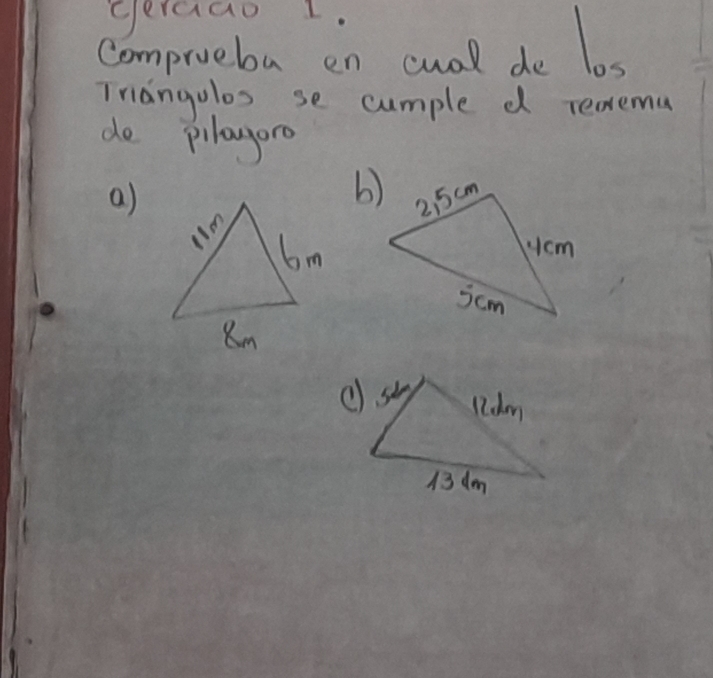 Ejercicio 1.
Comprueba en cual de los
Triángulos se cumple el teorema
de pitagoro
a)
11m
6m
8m
b)
2,5cm
4cm
5cm
c)
5dm
12dm
13dm